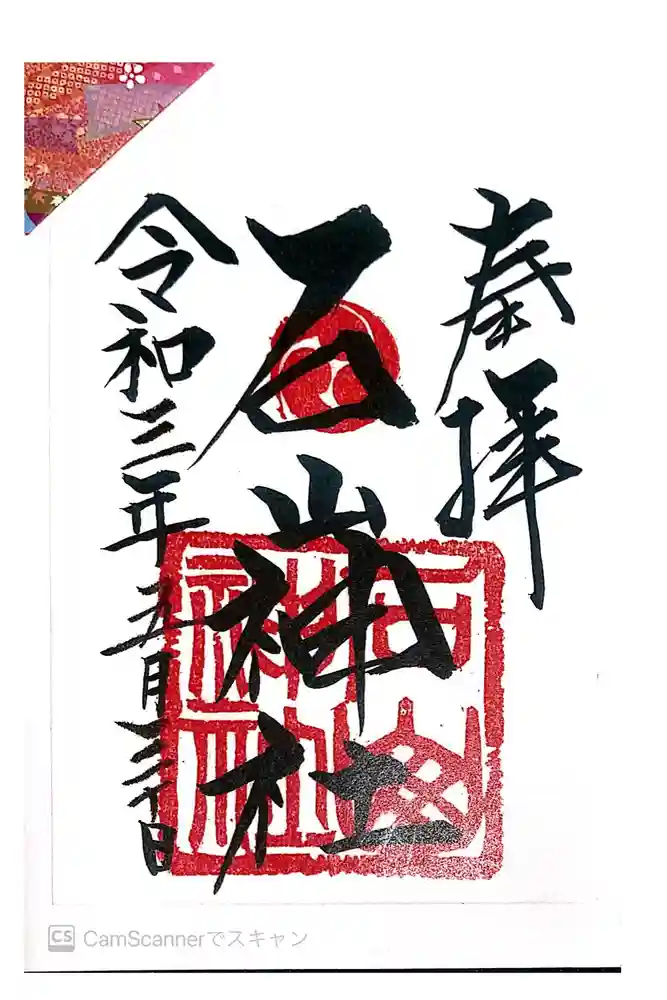 奉拝
石山神社
令和三年五月三十日
CS CamScannerでスキャン